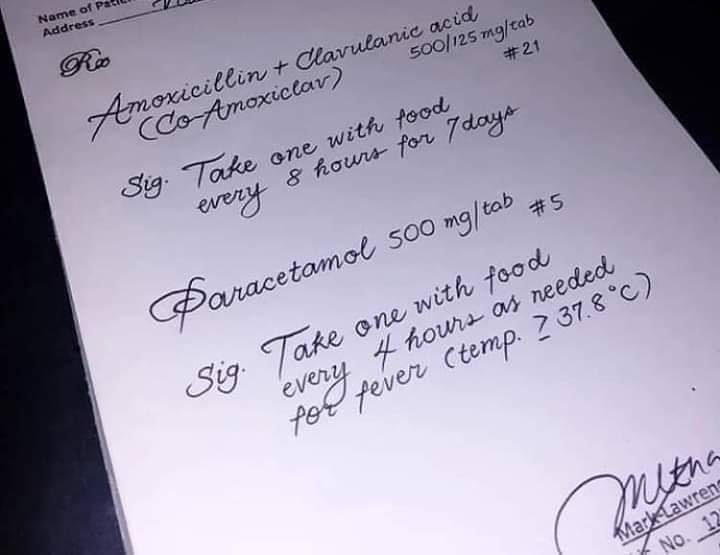 Name of
Address
Rx
Amoxicillin + Clavulanic acid
(Co-Amoxiclav) 500/125 mg/tab
#21
Sig. Take one with food
every 8 hours for 7 days
Paracetamol 500 mg/tab #5
Sig. Take one with food
every 4 hours as needed
for fever (temp. ≥ 37.8°C)
Mark Lawren
No. 12